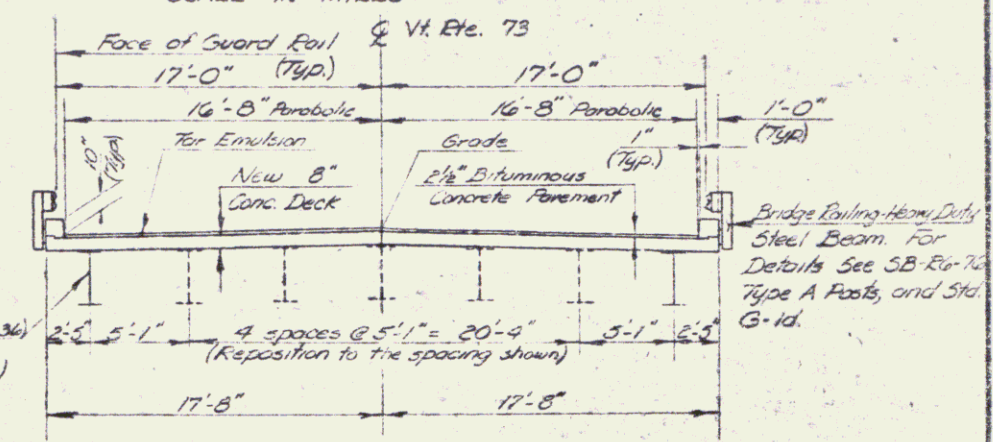 ℄ Vt. Rte. 73
Face of Guard Rail
(Typ.)
17'-0"
17'-0"
16'-8" Parabolic
16'-8" Parabolic
1'-0"
(Typ.)
Tar Emulsion
Grade
1"
(Typ.)
10"
(Typ.)
New 8"
Conc. Deck
2½" Bituminous
Concrete Pavement
Bridge Railing-Heavy Duty
Steel Beam. For
Details See
Type A Posts, and Std.
G-1d.
36)
2'-5"
5'-1"
4 spaces @ 5'-1" = 20'-4"
5'-1"
2'-5"
(Reposition to the spacing shown)
)
17'-8"
17'-8"